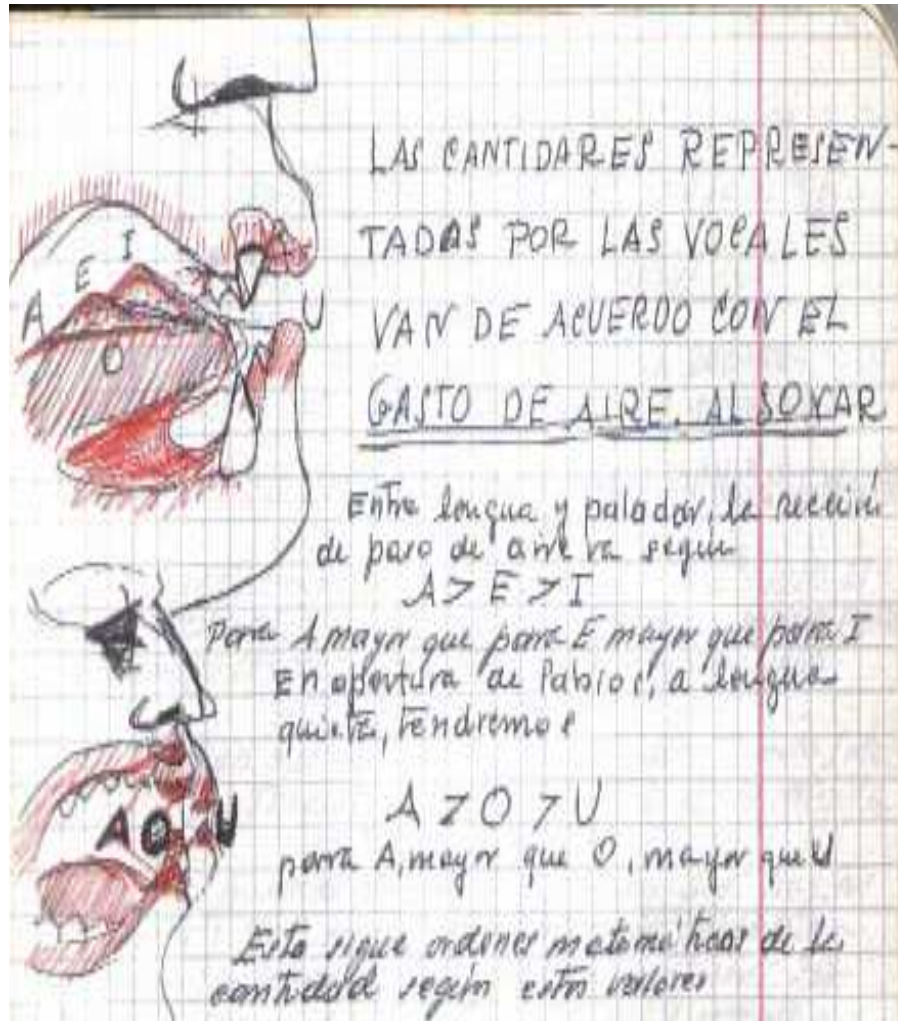 LAS CANTIDARES REPRESEN-
TADAS POR LAS VOCALES
VAN DE ACUERDO CON EL
GASTO DE AIRE. AL SONAR
I
E
A
U
O
Entre lengua y paladar, la sección
de paso de aire va según
A > E > I
Para A mayor que para E mayor que para I
En apertura de labios, a lengua
quieta, tendremos
A > O > U
A O U
para A, mayor que O, mayor que U
Esto sigue ordenes matemáticas de la
cantidad según estos valores